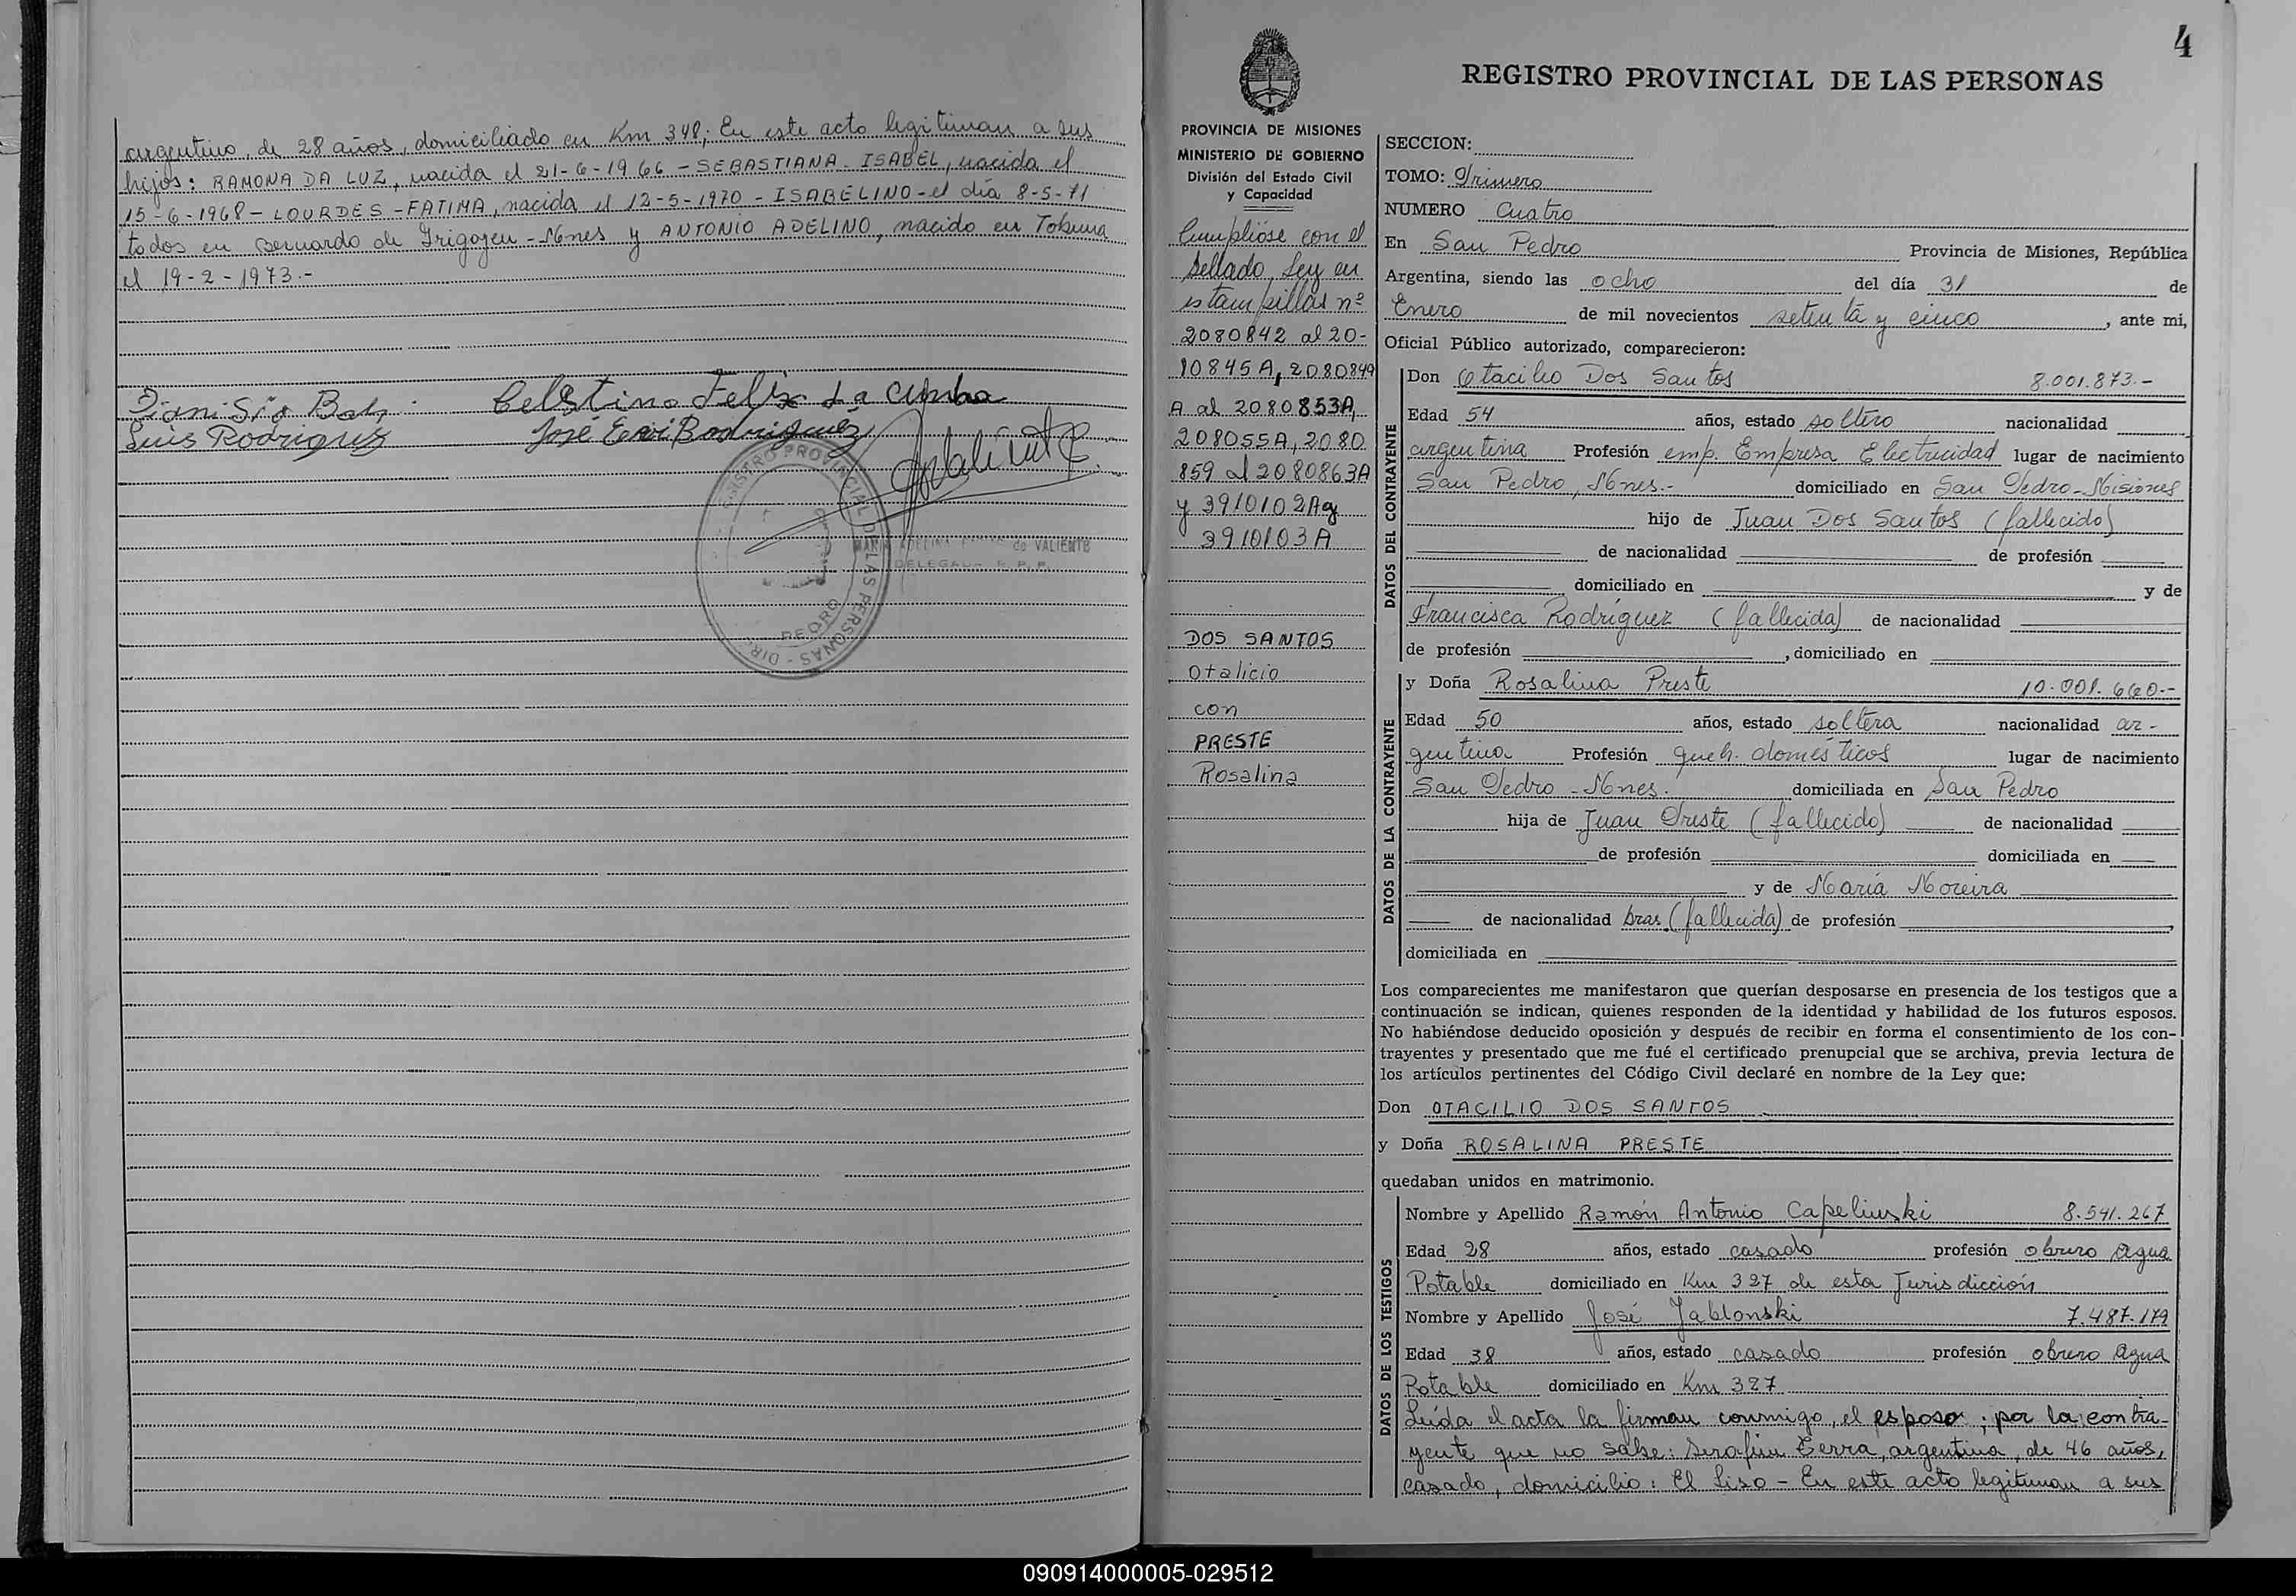 argentino, de 28 años, domiciliado en Km 348; En este acto legitiman a sus
hijos: RAMONA DA LUZ, nacida el 21-6-1966 - SEBASTIANA - ISABEL, nacida el
15-6-1968 - LOURDES - FATIMA, nacida el 12-5-1970 - ISABELINO - el día 8-5-71
todos en Bernardo de Irigoyen - Mnes y ANTONIO ADELINO, nacido en Tobuna
el 19-2-1973.-
Celestino Felix da Cunha
Luis Rodriguez José Rodriguez
REGISTRO PROVINCIAL DE LAS PERSONAS - DIR.
PEDRO
MARIA ADELINA de VALIENTE
DELEGADA R. P. P.
4
REGISTRO PROVINCIAL DE LAS PERSONAS
PROVINCIA DE MISIONES
MINISTERIO DE GOBIERNO
División del Estado Civil
y Capacidad
Cumplióse con el
sellado Ley en
estampillas nº
2080842 al 20-
80845A, 2080849
A al 2080853A,
208055A, 2080
859 al 2080863A
y 3910102A y
3910103A
DOS SANTOS
Otalicio
con
PRESTE
Rosalina
SECCION:
TOMO: Primero
NUMERO Cuatro
En San Pedro Provincia de Misiones, República
Argentina, siendo las ocho del día 31 de
Enero de mil novecientos setenta y cinco, ante mi,
Oficial Público autorizado, comparecieron:
DATOS DEL CONTRAYENTE
Don Otacilio Dos Santos 8.001.873.-
Edad 54 años, estado soltero nacionalidad
argentina Profesión emp. Empresa Electricidad lugar de nacimiento
San Pedro, Mnes.- domiciliado en San Pedro - Misiones
hijo de Juan Dos Santos (fallecido)
de nacionalidad de profesión
domiciliado en y de
Francisca Rodríguez (fallecida) de nacionalidad
de profesión , domiciliado en
DATOS DE LA CONTRAYENTE
y Doña Rosalina Preste 10.001.660.-
Edad 50 años, estado soltera nacionalidad ar-
gentina Profesión queh. domésticos lugar de nacimiento
San Pedro - Mnes. domiciliada en San Pedro
hija de Juan Preste (fallecido) de nacionalidad
de profesión domiciliada en
y de María Moreira
de nacionalidad bras. (fallecida) de profesión ,
domiciliada en
Los comparecientes me manifestaron que querían desposarse en presencia de los testigos que a
continuación se indican, quienes responden de la identidad y habilidad de los futuros esposos.
No habiéndose deducido oposición y después de recibir en forma el consentimiento de los con-
trayentes y presentado que me fué el certificado prenupcial que se archiva, previa lectura de
los artículos pertinentes del Código Civil declaré en nombre de la Ley que:
Don OTACILIO DOS SANTOS
y Doña ROSALINA PRESTE
quedaban unidos en matrimonio.
DATOS DE LOS TESTIGOS
Nombre y Apellido Ramón Antonio Capeliuski 8.541.267
Edad 28 años, estado casado profesión obrero Agua
Potable domiciliado en Km 327 de esta Jurisdicción
Nombre y Apellido José Jablonski 7.487.179
Edad 38 años, estado casado profesión obrero Agua
Potable domiciliado en Km 327
Leída el acta la firman conmigo, el esposo; por la contra-
yente que no sabe: Serafín Terra, argentina, de 46 años,
casado, domicilio: El Liso - En este acto legitiman a sus
090914000005-029512